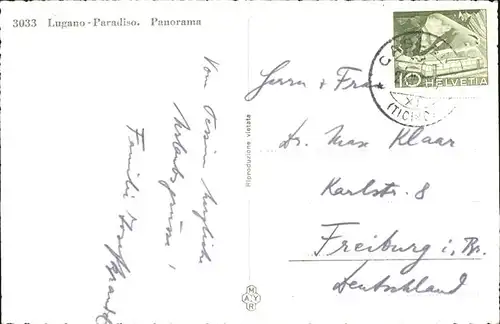 3033 Lugano-Paradiso. Panorama
Vom Tessin herzliche
Urlaubsgrüsse!
Familie Josef
Riproduzione vietata
MAYR
10 HELVETIA
(TICINO)
Herrn + Frau
Dr. Max Klaar
Karlstr. 8
Freiburg i. Br.
Deutschland